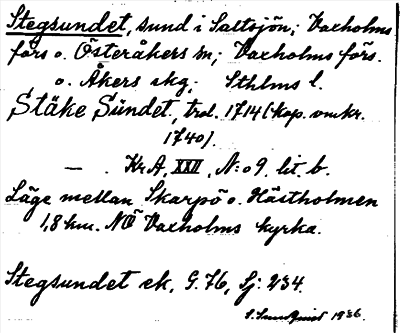 Stegsundet, sund i Saltsjön; Vaxholms
förs o. Österåkers sn; Vaxholms förs.
o. Åkers skg; Sthlms l.
Stäke Sündet, trol. 1714 (kop. omkr.
1740).
— . KrA, XXII, N:o 9 lit. b.
Läge mellan Skarpö o. Hästholmen
1,8 km. NÖ Vaxholms kyrka.
Stegsundet ek, G. 76, Sj: 234.
S. Sundquist 1936.